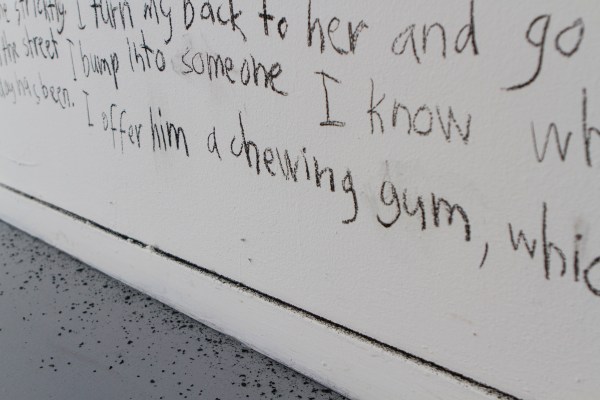 strictly I turn my back to her and go
the street I bump into someone I know wh
day has been. I offer him a chewing gum, whic